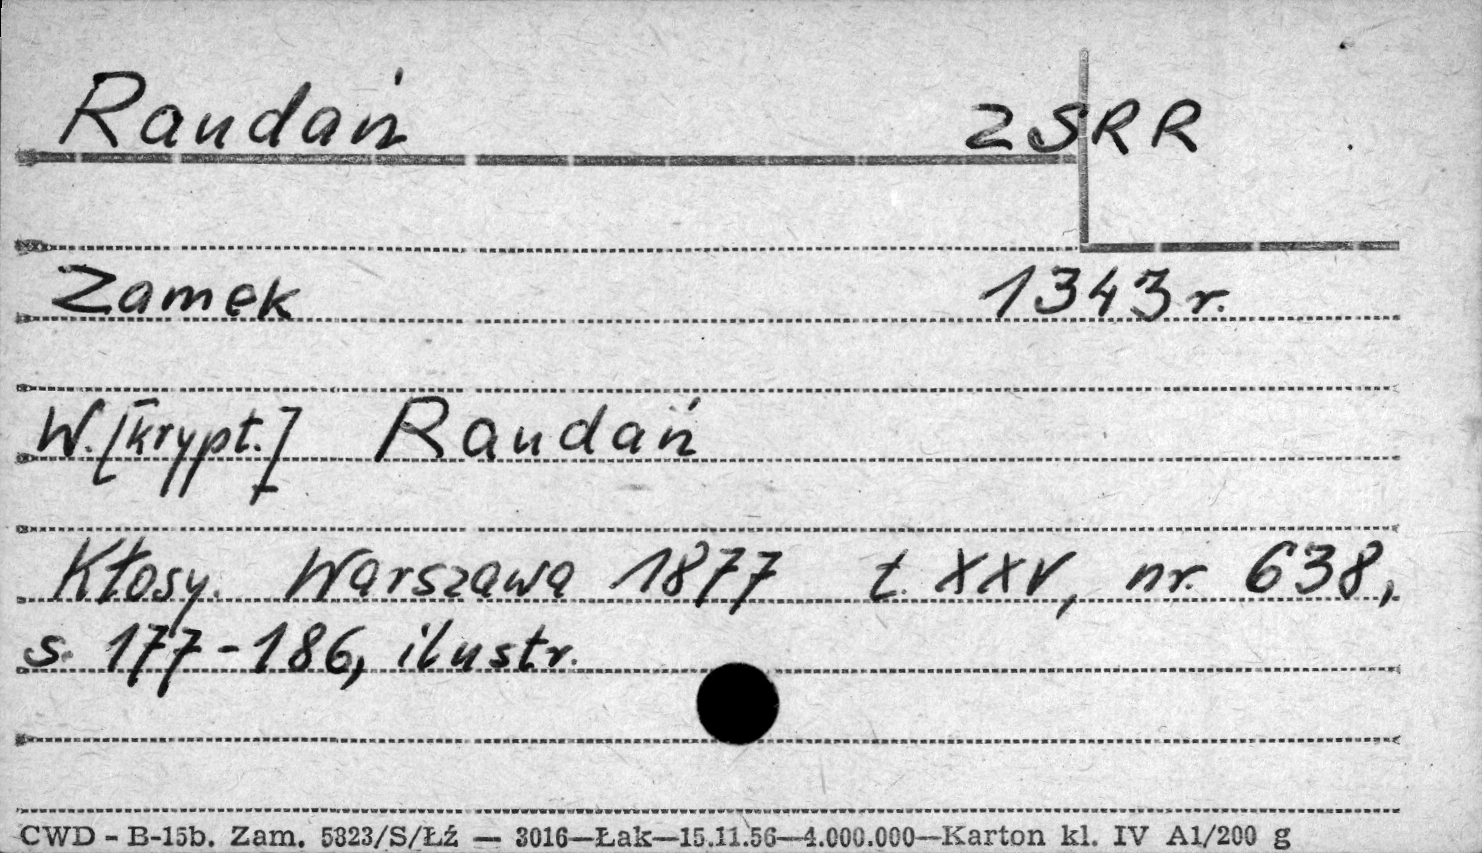 Raudań ZSRR
Zamek 1343 r.
W. [krypt.] Raudań
Kłosy. Warszawa 1877 t. XXV, nr. 638,
s. 177-186, ilustr.
CWD - B-15b. Zam. 5823/S/Łź — 3016—Łak—15.11.56—4.000.000—Karton kl. IV A1/200 g